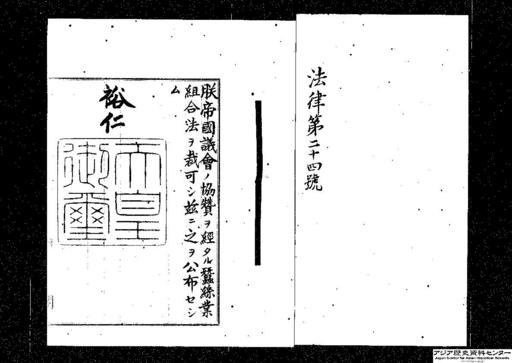 法律第二十四號
朕帝國議會ノ協贊ヲ經タル蠶絲業
組合法ヲ裁可シ茲ニ之ヲ公布セシ
ム
裕仁
天皇
御璽
アジア歴史資料センター
Japan Center for Asian Historical Records